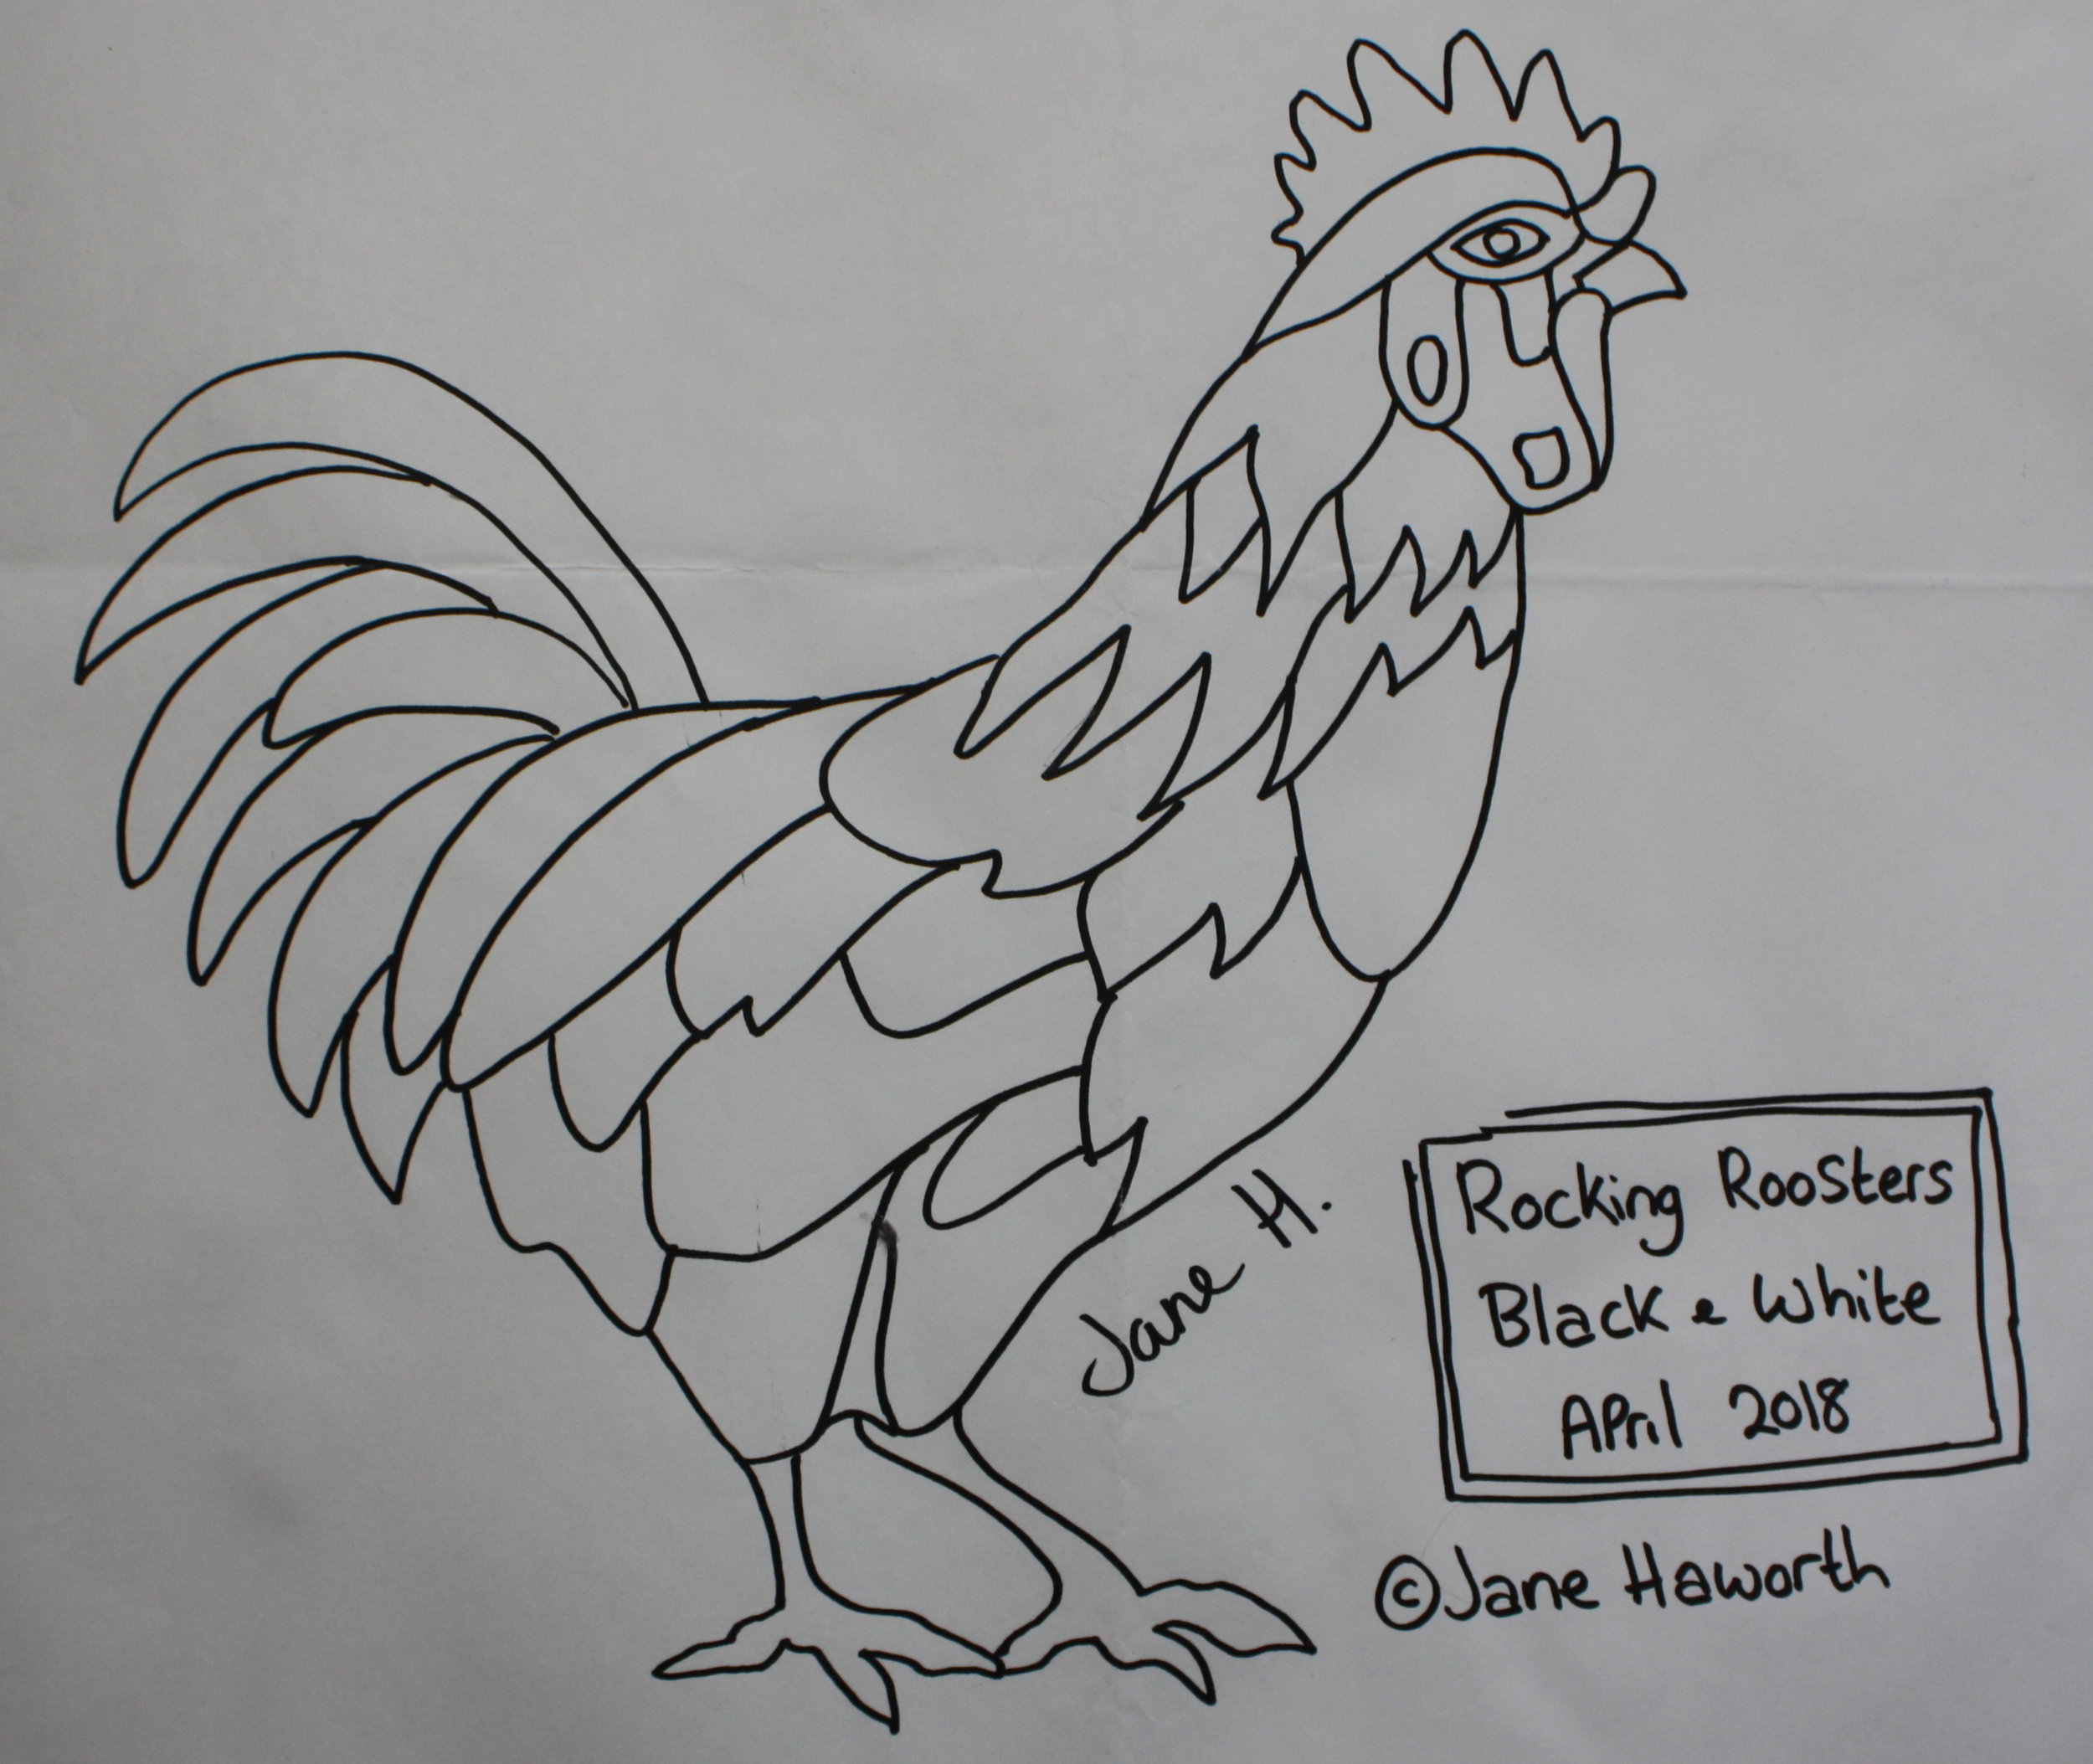 Jane H.
Rocking Roosters
Black & White
April 2018
© Jane Haworth